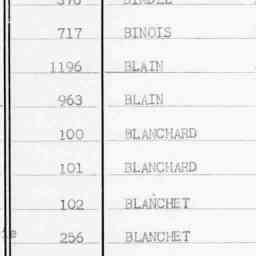 717 BINOIS
1196 BLAIN
963 BLAIN
100 BLANCHARD
101 BLANCHARD
102 BLANCHET
256 BLANCHET